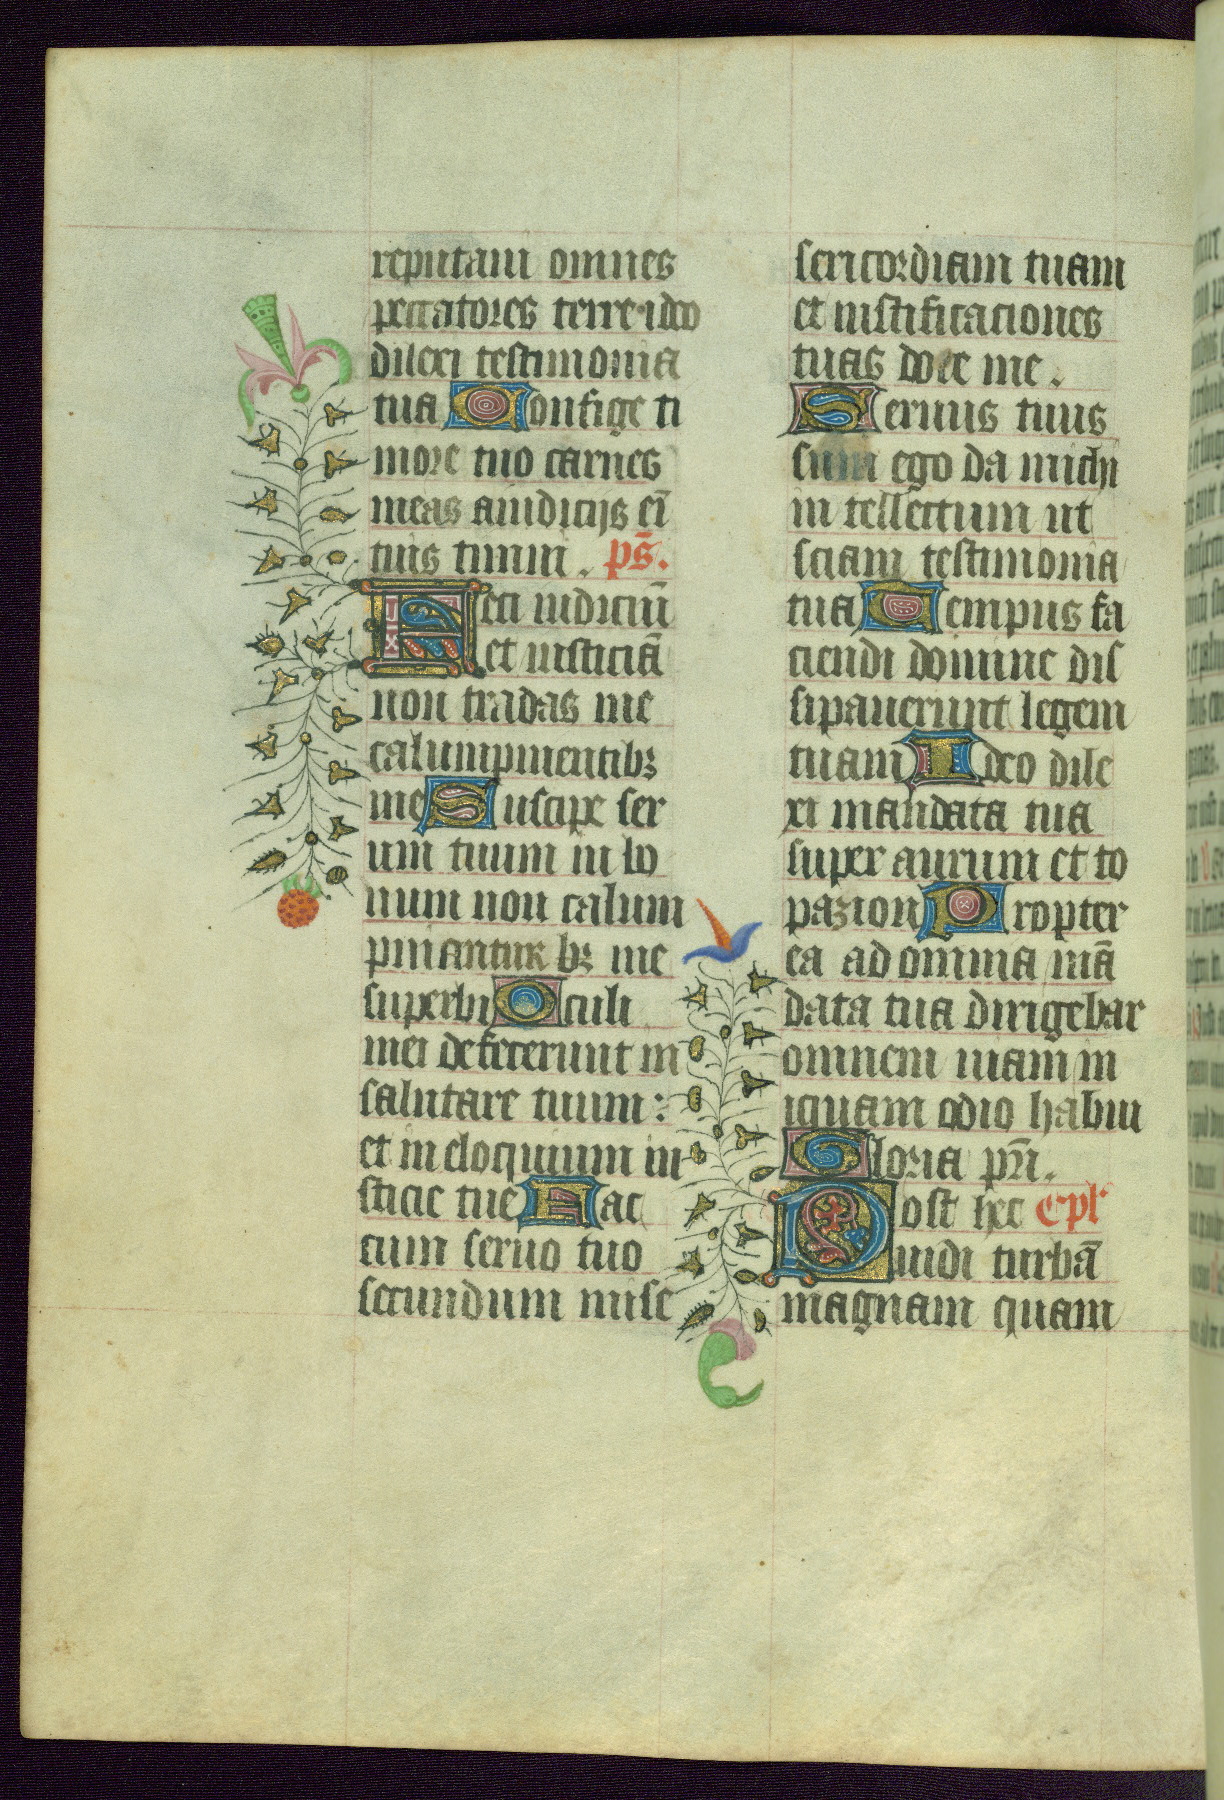 reputaui omnes
peccatores terre ideo
dilexi testimonia
tua Confige ti
more tuo carnes
meas a iudicijs ei̅
tuis timui. ps̅.
Feci iudiciu̅
et iusticia̅
non tradas me
calumpnientibꝫ
me Suscipe ser
uum tuum in bo
num non calum
pniantur bꝫ me
superbi Oculi
mei defecerunt in
salutare tuum:
et in eloquium iu
sticie tue Fac
cum seruo tuo
secundum mise
sericordiam tuam
et iustificaciones
tuas doce me.
Seruus tuus
sum ego da michi
in tellectum ut
sciam testimonia
tua Tempus fa
ciendi domine dis
sipauerunt legem
tuam Ideo dile
xi mandata tua
super aurum et to
pazion Propter
ea ad omnia ma̅
data tua dirigebar
omnem uiam in
iquam odio habui
Gloria pr̅i.
Post hec Epl'
uidi turba̅
magnam quam